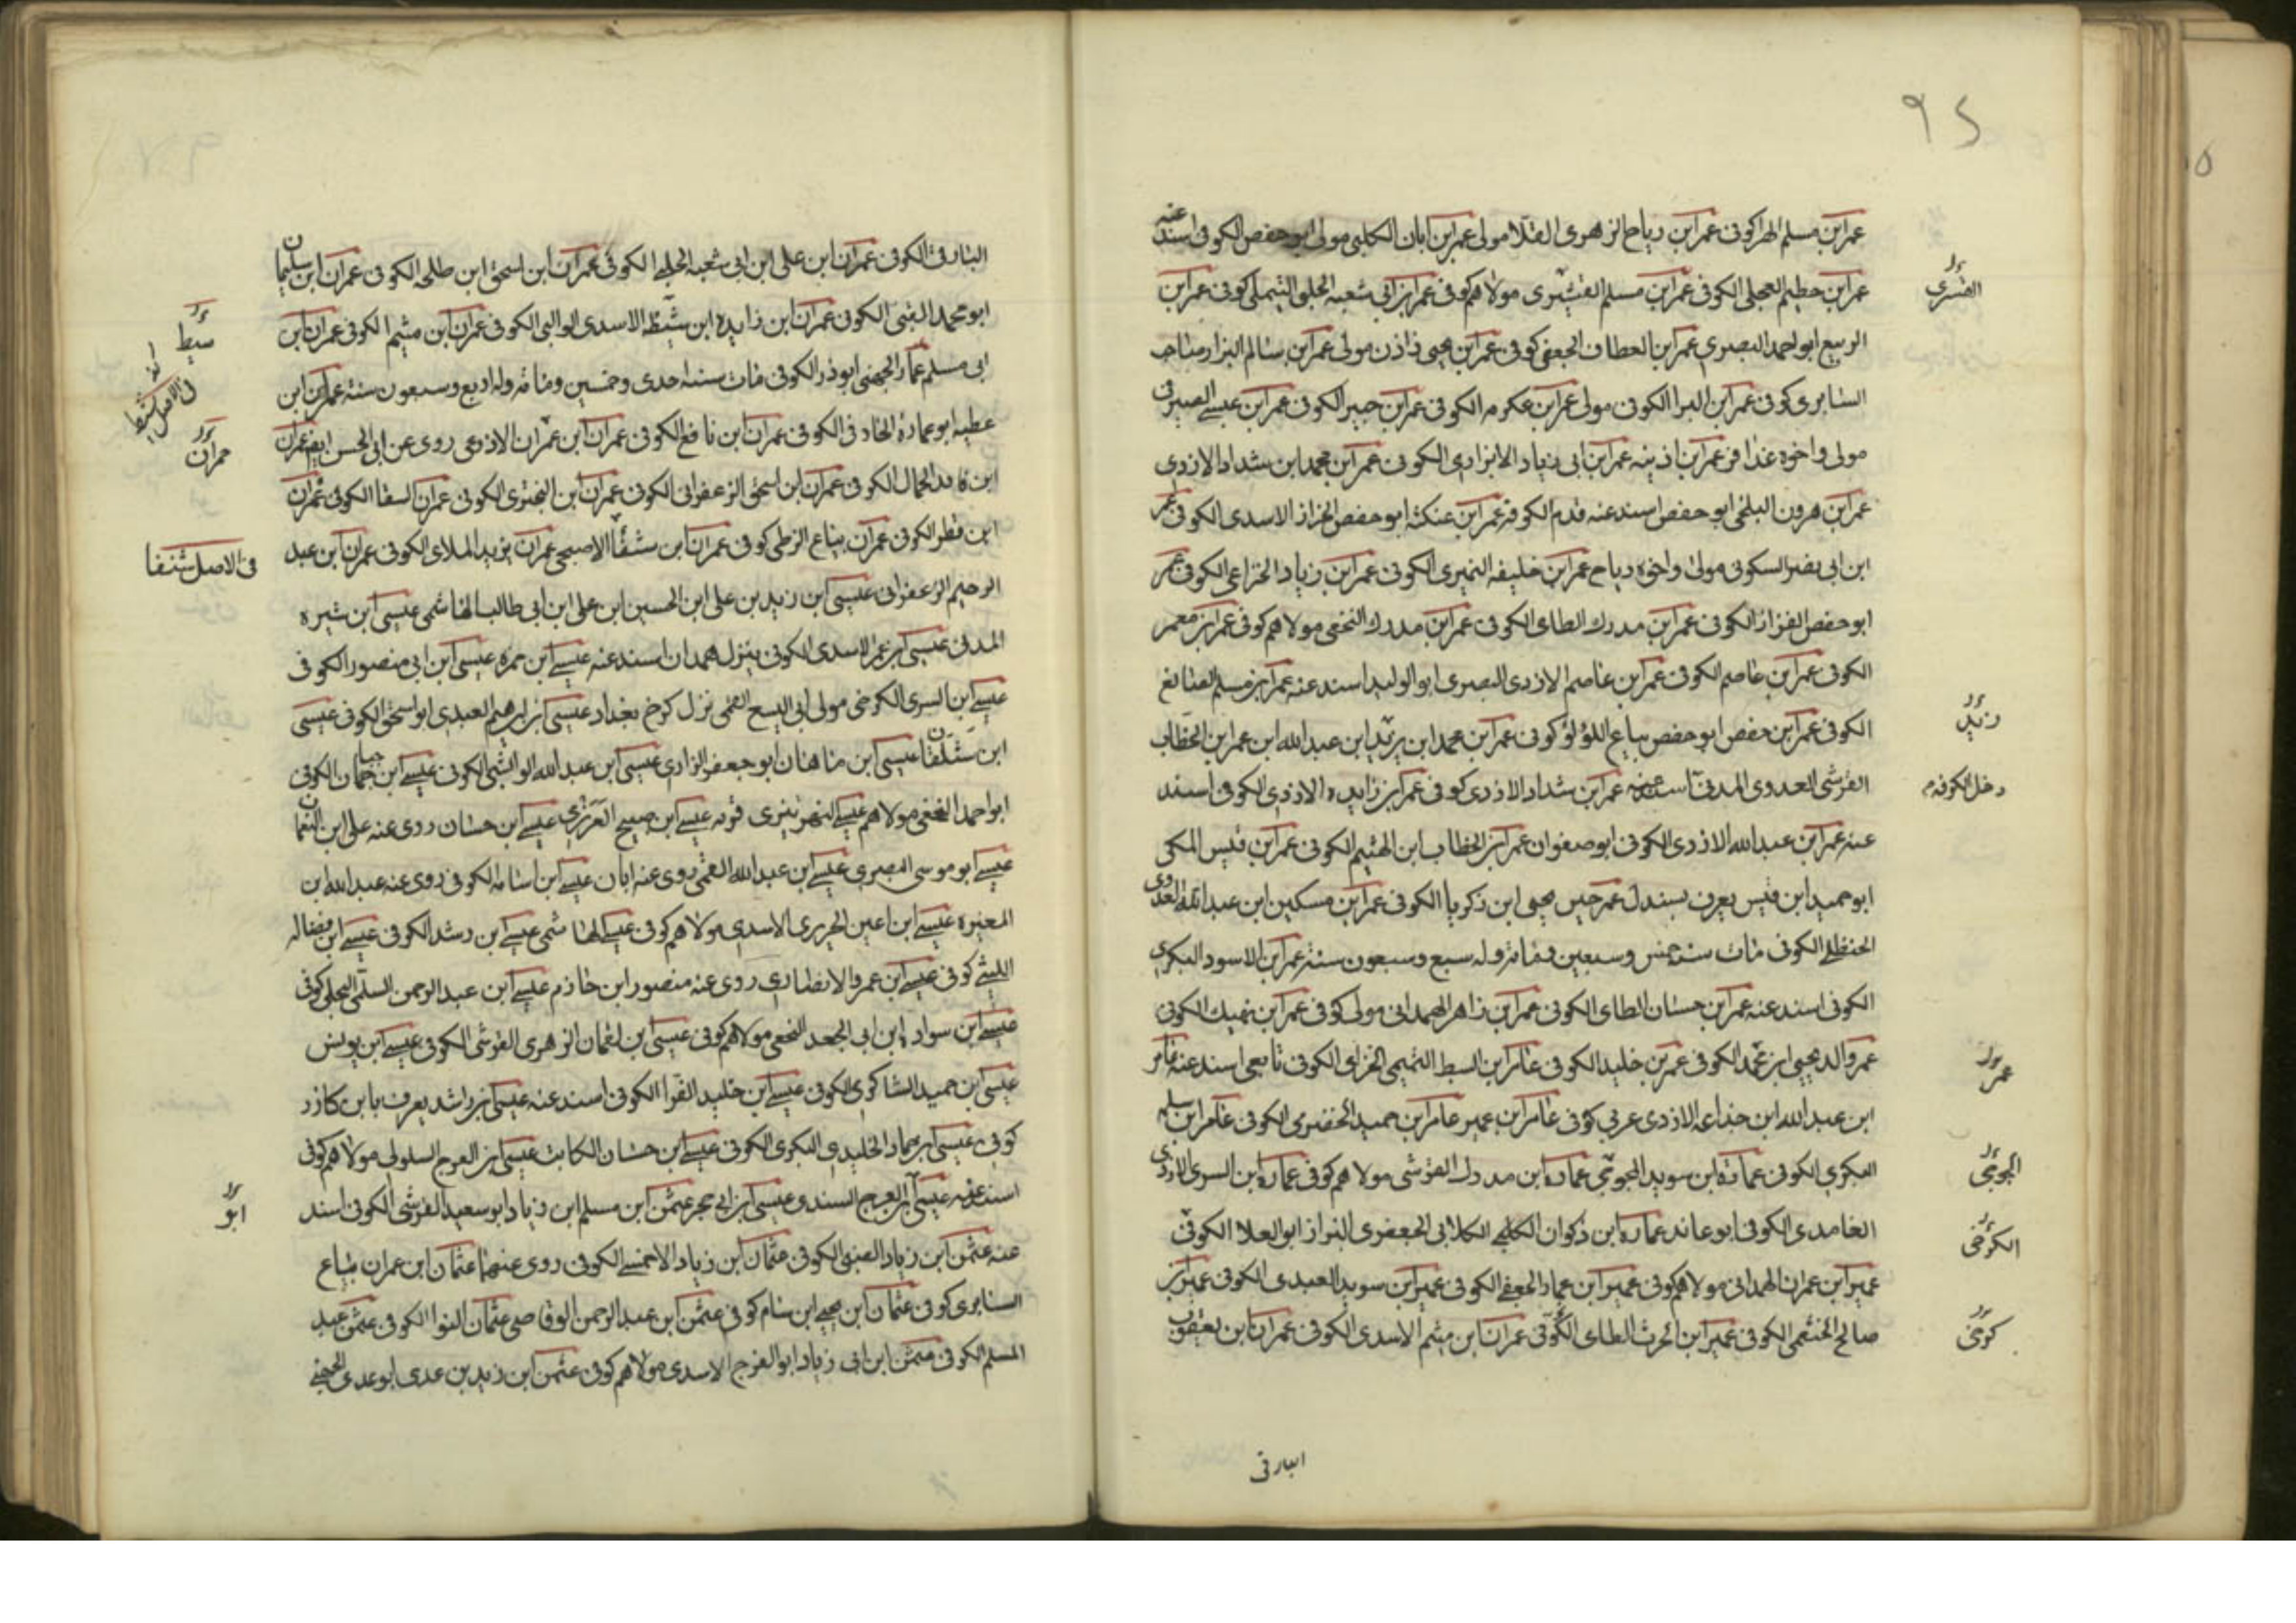 ٩٢
عمر ابن مسلم الهرا كوفى عمر ابن رياح الزهرى القلا مولى عمر ابن ابان الكلبى مولى ابو حفص الكوفى اسند عنه
عمر ابن حطيم العجلى الكوفى عمر ابن مسلم القشيرى مولاهم كوفى عمر ابن ابى شعبه الحلبى التيملى كوفى عمر ابن
القسرى
الربيع ابو احمد البصرى عمر ابن العطاف الجعفى كوفى عمر ابن يحيى زاذن مولى عمر ابن سالم البزار صاحب
السابرى كوفى عمر ابن البرا الكوفى مولى عمر ابن عكرمه الكوفى عمر ابن جبير الكوفى عمر ابن عيسى الصيرفى
مولى واخوه عذافر عمر ابن اذينه عمر ابن ابى زياد الابزارى الكوفى عمر ابن محمد ابن شداد الازدى
عمر ابن هرون البلخى ابو حفص اسند عنه قدم الكوفه عمر ابن عنكثه ابو حفص الخزاز الاسدى الكوفى عمر
ابن ابى نصر السكونى مولى واخوه رياح عمر ابن خليفه النميرى الكوفى عمر ابن زياد الخزاعى الكوفى عمر
ابو حفص الفزاز الكوفى عمر ابن مدرك الطاى الكوفى عمر ابن مدرك النخعى مولاهم كوفى عمر ابن معمر
الكوفى عمر ابن عاصم الكوفى عمر ابن عاصم الازدى البصرى ابو الوليد اسند عنه عمر ابن مسلم الصايغ
الكوفى عمر ابن حفص ابو حفص بياع اللؤلؤ كوفى عمر ابن محمد ابن يزيد ابن عبد الله ابن عمر ابن الخطاب
زيد
القرشى العدوى المدنى اسند عنه عمر ابن شداد الازدى كوفى عمر ابن زايده الازدى الكوفى اسند
دخل الكوفه م
عنه عمر ابن عبد الله الازدى الكوفى ابو صفوان عمر ابن الخطاب ابن الهثيم الكوفى عمر ابن قيس المكى
ابو حميد ابن قيس يعرف بسندل عمر حبيس يحيى ابن زكريا الكوفى عمر ابن مسكين ابن عبد الله العدوى
الحنظلى الكوفى مات سنه خمس وسبعين ومائه وله سبع وسبعون سنه عمر ابن الاسود البكرى
الكوفى اسند عنه عمر ابن حسان الطاى الكوفى عمر ابن زاهر الهمدانى مولى كوفى عمر ابن نهيك الكوفى
عمر والد يحيى ابن محمد الكوفى عمر بن خليد الكوفى عامر ابن السبط التميمى الخزاى الكوفى تابعى اسند عنه عامر
عمر
ابن عبد الله ابن جذاعه الازدى عربى كوفى عامر ابن عمير عامر ابن حميد الحضرمى الكوفى عامر ابن سلمه
البكرى الكوفى عماره ابن سويد الجوخى عماره ابن مدرك القرشى مولاهم كوفى عماره ابن السرى الازدى
الجوخى
الغامدى الكوفى ابو عاند عماره ابن ذكوان الكلبى الكلابى الجعفرى البزاز ابو العلا الكوفى
الكرخى
عمير ابن عمران الهمدانى مولاهم كوفى عمير ابن عماد الجعفى الكوفى عمير ابن سويد العبدى الكوفى عمير ابن
صالح الخثعمى الكوفى عمير ابن الحرث الطاى الكوفى عمران ابن ميثم الاسدى الكوفى عمران ابن يعقوب
كرخى
البارقى
البارقى الكوفى عمران ابن على ابن ابى شعبه الحلبى الكوفى عمران ابن اسحق ابن طلحه الكوفى عمران ابن سليمان
ابو محمد القبى الكوفى عمران ابن زايده ابن شيظه الاسدى الوالبى الكوفى عمران ابن ميثم الكوفى عمران ابن
ابى مسلم عمار الجهنى ابوذر الكوفى مات سنه احدى وخمسين ومائه وله اربع وسبعون سنه عمران ابن
عطيه ابو عماده الخارفى الكوفى عمران ابن نافع الكوفى عمران ابن عمران الاذرعى روى عن ابى الحسن ايضا عمران
حمران
ابن فايد الجمال الكوفى عمران ابن اسحق الزعفرانى الكوفى عمران ابن البخترى الكوفى عمران السقا الكوفى عمران
ابن قطر الكوفى عمران بياع الزطى كوفى عمران ابن شفا الاصبحى عمران يزيد الملاى الكوفى عمران ابن عبد
فى الاصل شنفا
الرحيم الزعفرانى عيسى ابن زيد بن على ابن الحسين ابن على ابن ابى طالب الهاشمى عيسى ابن شبره
المدنى عيسى ابن عمر الاسدى الكوفى ينزل همدان اسند عنه عيسى ابن حمزه عيسى ابن ابى منصور الكوفى
عيسى ابن السرى الكرخى مولى ابى اليسع القمى نزل كرخ بغداد عيسى ابن ابرهيم العبدى ابو اسحق الكوفى عيسى
ابن شلقان عيسى ابن ماهان ابو جعفر الرازى عيسى ابن عبد الله الكوفى عيسى ابن الكوفى
ابو احمد النخعى مولاهم عيسى النهرتيرى قربه عيسى ابن صبيح العرزمى عيسى ابن حسان روى عنه على ابن النعمان
عيسى ابو موسى البصرى عيسى ابن عبد الله القمى روى عنه ابان عيسى ابن اسامه الكوفى روى عنه عبد الله ابن
المغيره عيسى ابن اعين الجريرى الاسدى مولاهم كوفى عيسى الهاشمى عيسى ابن رشد الكوفى عيسى ابن فضاله
الليثى كوفى عيسى ابن عمرو الانصارى روى عنه منصور ابن حازم عيسى ابن عبد الرحمن السلمى البجلى كوفى
عيسى ابن سواده ابن ابى الجعد النخعى مولاهم كوفى عيسى بن لقمان الزهرى القرشى الكوفى عيسى ابن يونس
عيسى ابن حميد الشاكرى الكوفى عيسى ابن خليد الفرا الكوفى اسند عنه عيسى ابن راشد يعرف بابن كازر
كوفى عيسى ابن حماد الخليدى البكرى الكوفى عيسى ابن حسان الكاتب عيسى ابن الفرج السلولى مولاهم كوفى
اسند عنه عيسى ابن الفرج السندى عيسى ابن ابى حجر عثمن ابن مسلم ابن زياد ابو سعيد القرشى الكوفى اسند
ابو
عنه عثمن ابن زياد الضبى الكوفى عثمان ابن زياد الاحمسى الكوفى روى عنهما عثمان ابن عمران بياع
السابرى كوفى عثمان ابن يحيى ابن سام كوفى عثمن ابن عبد الرحمن الوقاصى عثمان النوا الكوفى عثمن عبد
المسلم الكوفى عثمن ابن ابى زياد ابو الفرج الاسدى مولاهم كوفى عثمن ابن زيد بن عدى ابو عدى الجهنى